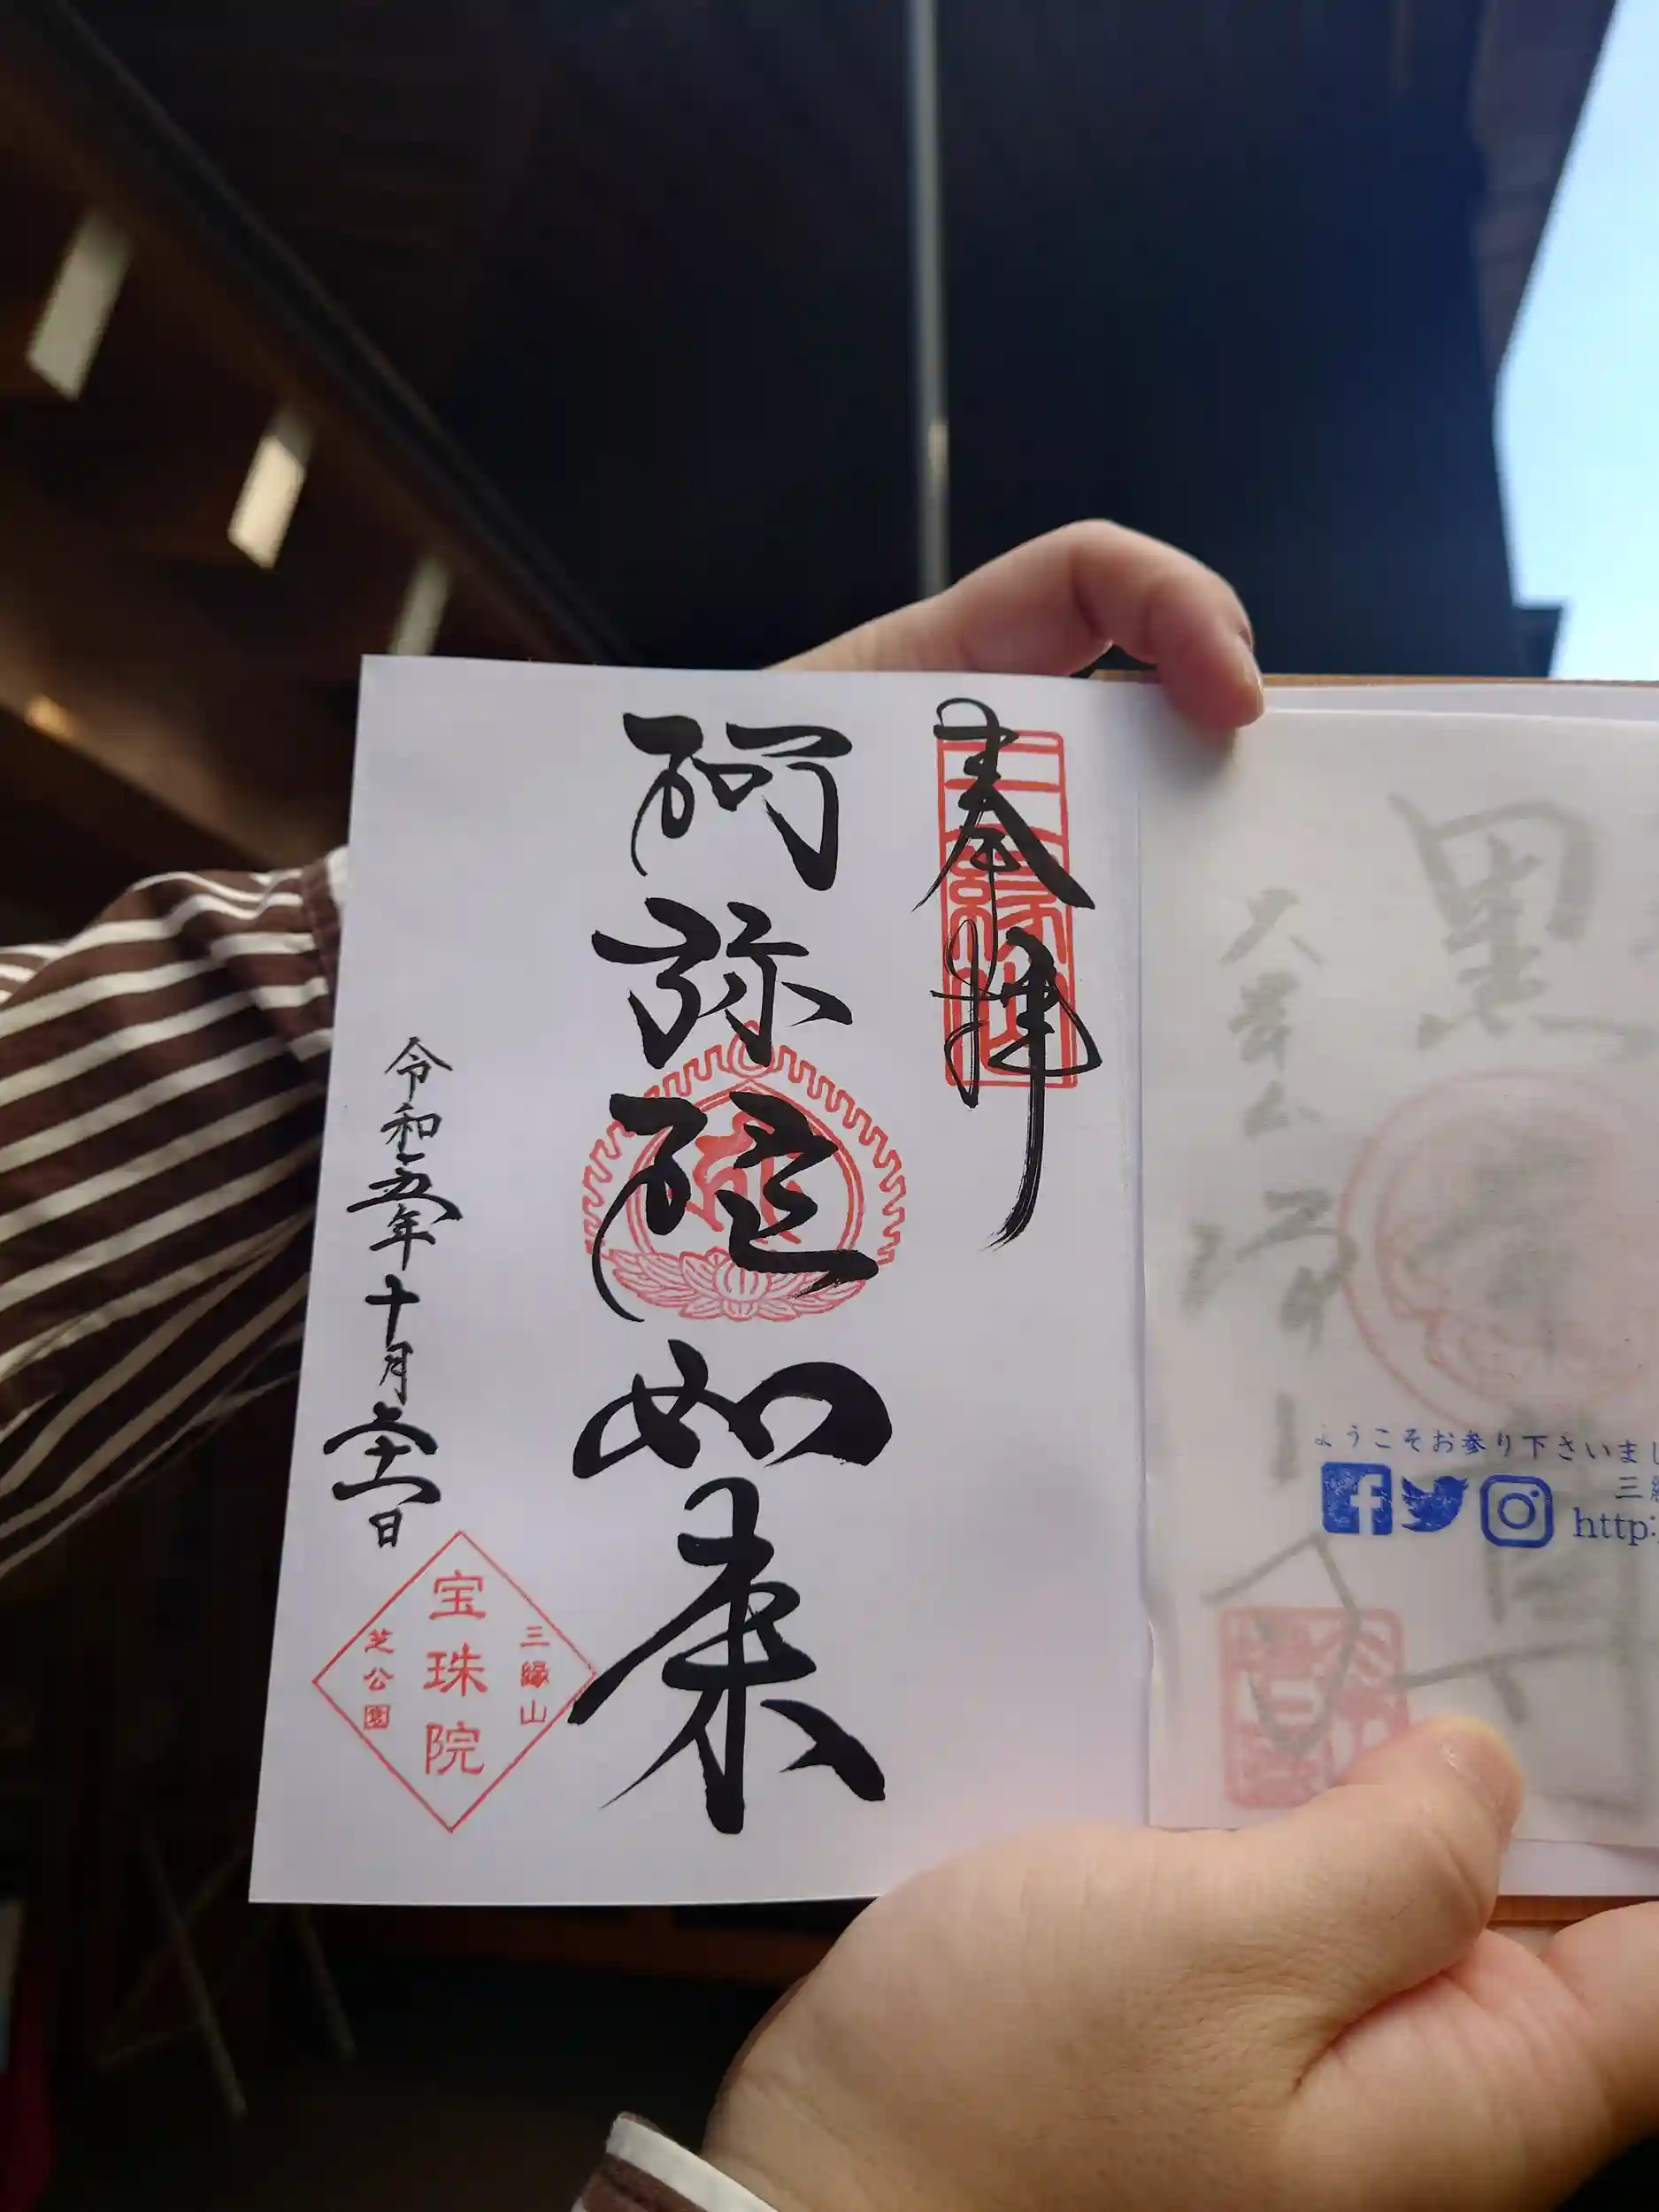 黒
ようこそお参り下さいまし
http:
奉拝
阿弥陀如来
令和五年十月二十一日
三縁山
宝珠院
芝公園